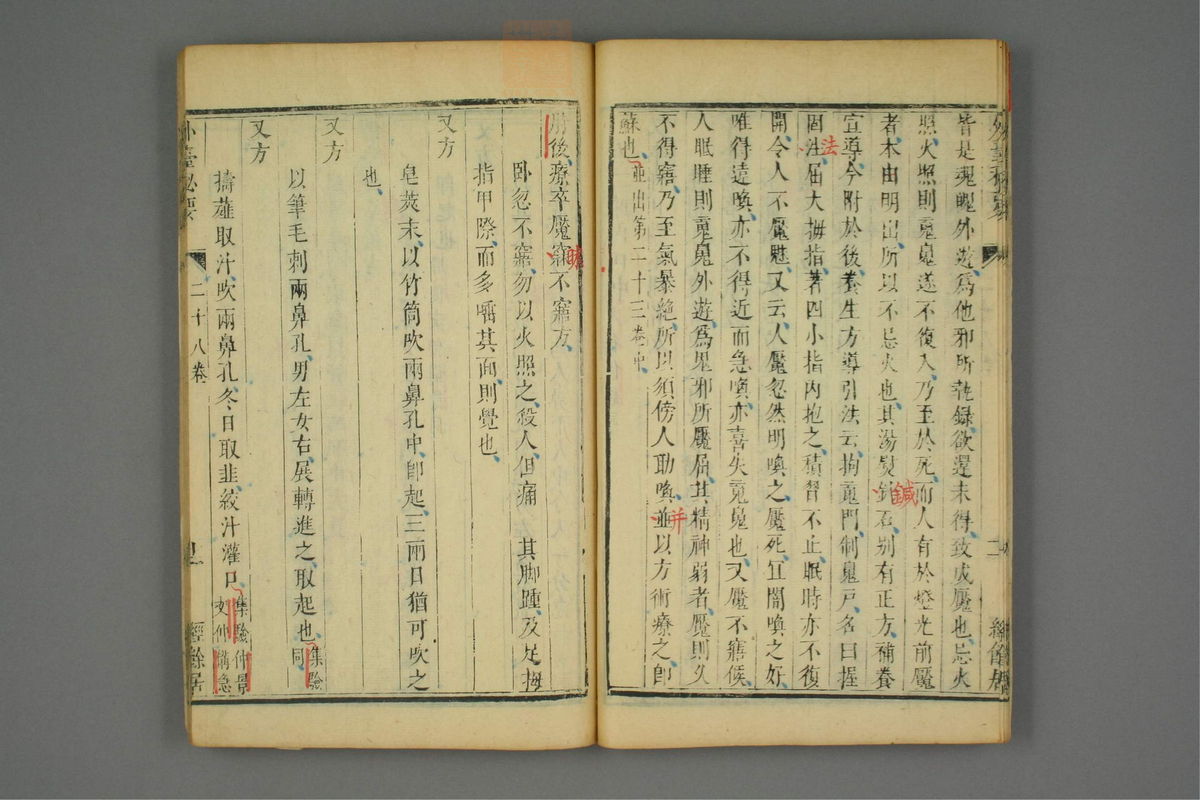 皆是魂魄外遊爲他邪所執錄欲還未得致成魘也忌火
照火照則䰟魄遂不復入乃至於死而人有於燈光前魘
者本由明出所以不忌火也其湯熨針石別有正方補養
鍼
宣導今附於後養生方導引法云拘䰟門制魄戶名曰握
固法屈大拇指著四小指內抱之積習不止眠時亦不復
法
開令人不魘魅又云人魘忽然明喚之魘死宜闇喚之好
唯得遠喚亦不得近而急喚亦喜失䰟魄也又魘不寤候
人眠睡則䰟魄外遊爲鬼邪所魘屈其精神弱者魘則久
不得寤乃至氣暴絶所以須傍人助喚並以方術療之卽
并
蘇也並出第二十三卷中
肘後療卒魘寐不寤方
卧忽不寤勿以火照之殺人但痛其脚踵及足拇
指甲際而多唾其面則覺也
又方
皂莢末以竹筒吹兩鼻孔中卽起三兩日猶可吹之
也
又方
以筆毛刺兩鼻孔男左女右展轉進之取起也集驗同
又方
擣薤取汁吹兩鼻孔冬日取韭絞汁灌口集驗
外臺秘要
二十八卷
經餘居